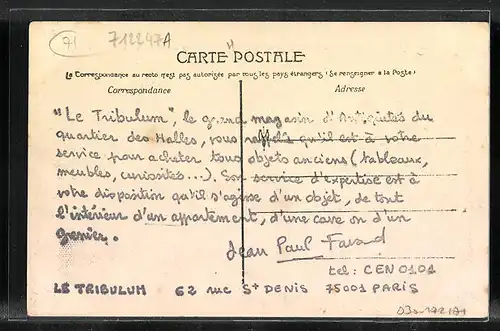 71
712247A
CARTE POSTALE
La Correspondance au recto n'est pas autorisée par tous les pays étrangers (Se renseigner à la Poste)
Correspondance Adresse
"Le Tribulum", le grand magasin d'Antiquités du
quartier des Halles, vous rappelle qu'il est à votre
service pour acheter tous objets anciens (tableaux,
meubles, curiosités...). Son service d'expertise est à
votre disposition qu'il s'agisse d'un objet, de tout
l'intérieur d'un appartement, d'une cave ou d'un
grenier.
Jean Paul
tel: CEN 0101
LE TRIBULUM 62 rue St DENIS 75001 PARIS